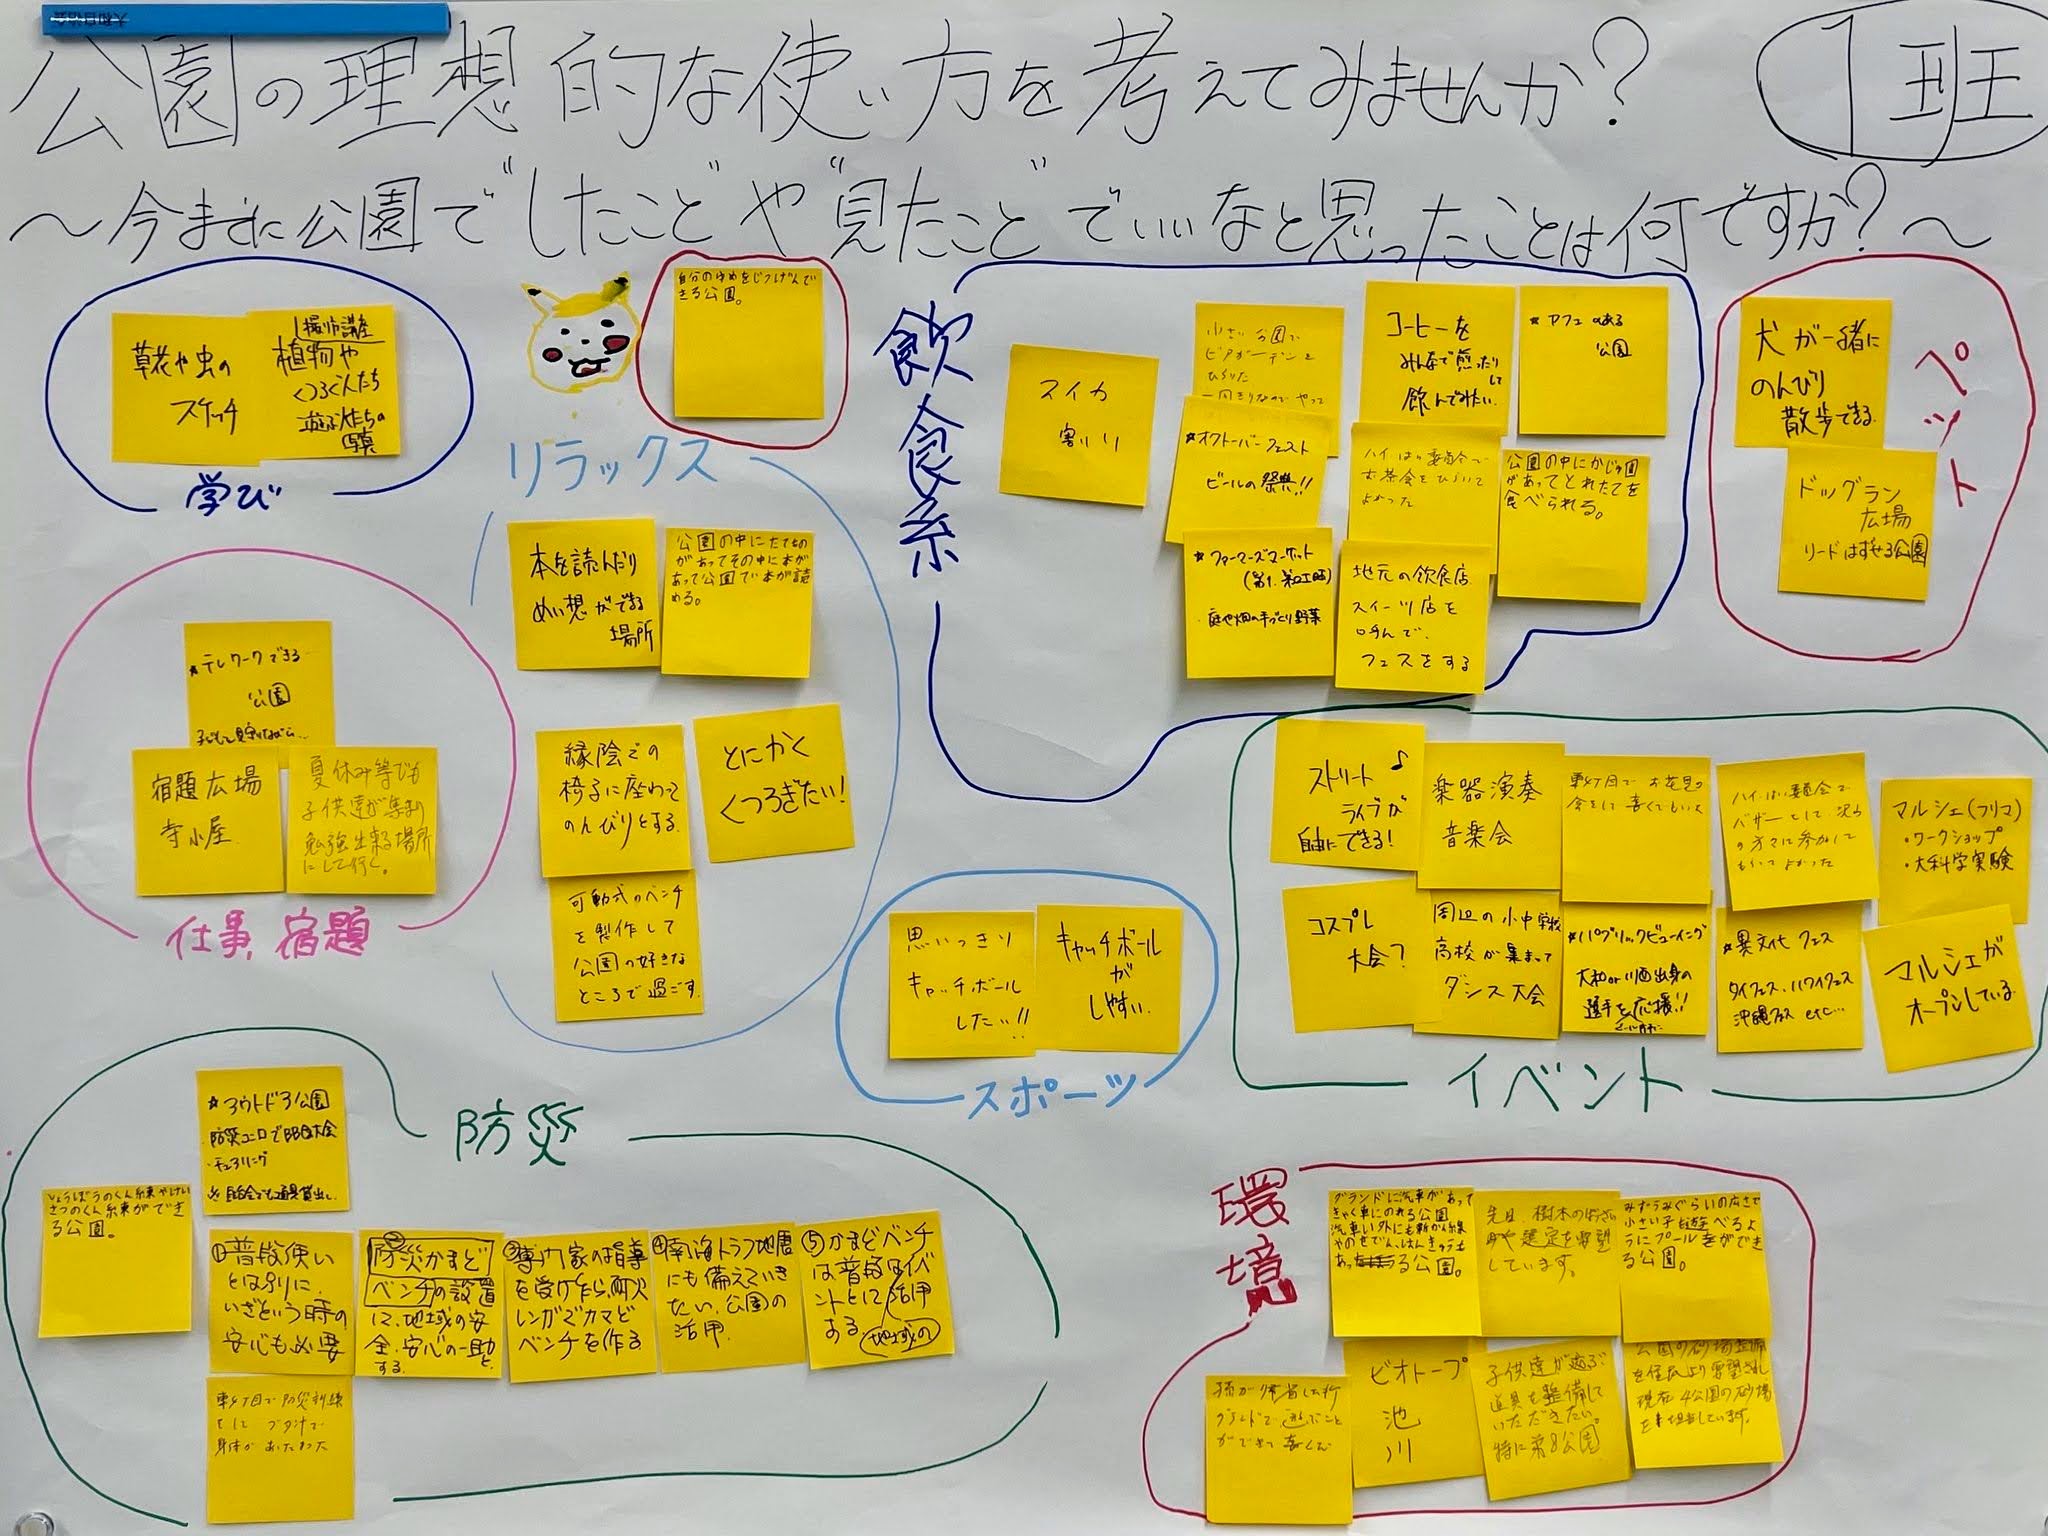 公園の理想的な使い方を考えてみませんか?
1班
〜今までに公園で"したこと"や"見たこと"でいいなと思ったことは何ですか?〜
草花や虫の
スケッチ
撮り方講座
植物や
くつろぐ人たち
遊ぶ人たちの
写真
学び
自分のゆめをじつげんで
きる公園。
リラックス
本を読んだり
めい想ができる
場所
公園の中にたてもの
があってその中に本が
あって公園で本が読
める。
縁陰での
椅子に座わって
のんびりとする
とにかく
くつろぎたい!
可動式のベンチ
を製作して
公園の好きな
ところで過ごす
飲食系
スイカ
割り
小さい公園で
ビアガーデンを
ひらいた
コーヒーを
みんなで煎ったり
して
飲んでみたい
★カフェのある
公園
★オクトーバーフェスト
ビールの祭典!!
お茶会をひらいて
よかった
公園の中にかじゅ園
があってとれたてを
食べられる。
★ファーマーズマーケット
庭や畑の手づくり野菜
地元の飲食店
スイーツ店を
呼んで、
フェスをする
ペット
犬が一緒に
のんびり
散歩できる
ドッグラン
広場
リードはずせる公園
★テレワークできる
公園
子どもを見守りながら…
宿題広場
寺小屋
夏休み等でも
子供達が集まり
勉強出来る場所
にして行く。
仕事、宿題
思いっきり
キャッチボール
したい!!
キャッチボール
が
しやすい
スポーツ
ストリート♪
ライブが
自由にできる!
楽器演奏
音楽会
マルシェ(フリマ)
・ワークショップ
・大科学実験
コスプレ
大会?
周辺の小中学校
高校が集まって
ダンス大会
★パブリックビューイング
大和or川西出身の
選手を応援!!
★異文化フェス
タイフェス、ハワイフェス
沖縄フェス etc…
マルシェが
オープンしている
イベント
防災
★アウトドア公園
・防災コンロでBBQ大会
しょうぼうのくん練やけい
さつのくん練ができ
る公園。
①普段使い
とは別に、
いざという時の
安心も必要
②防災かまど
ベンチの設置
に、地域の安
全、安心の一助と
する。
③専門家の指導
を受け作ら、耐火
レンガでカマど
ベンチを作る
④南海トラフ地震
にも備えていき
たい、公園の
活用
⑤かまどベンチ
は普段はイベ
ントとに活用
する 地域の
東4丁目で防災訓練
をして ブタ汁で
身体があたたまった
環境
グランドに汽車があって
きゃく車にのれる公園
汽車い外にも新かん線
やのせでん、はんきゅうも
ある公園。
先日、樹木の
や選定を要望
しています。
みずうみぐらいの広さで
小さい子も遊べるよ
うにプール
る公園。
孫が帰省した
グランドで遊ぶこと
ができて喜んだ
ビオトープ
池
川
子供達が遊ぶ
道具を整備して
いただきたい
特に第8公園
公園の砂場整備
を住民より要望され
現在4公園の砂場